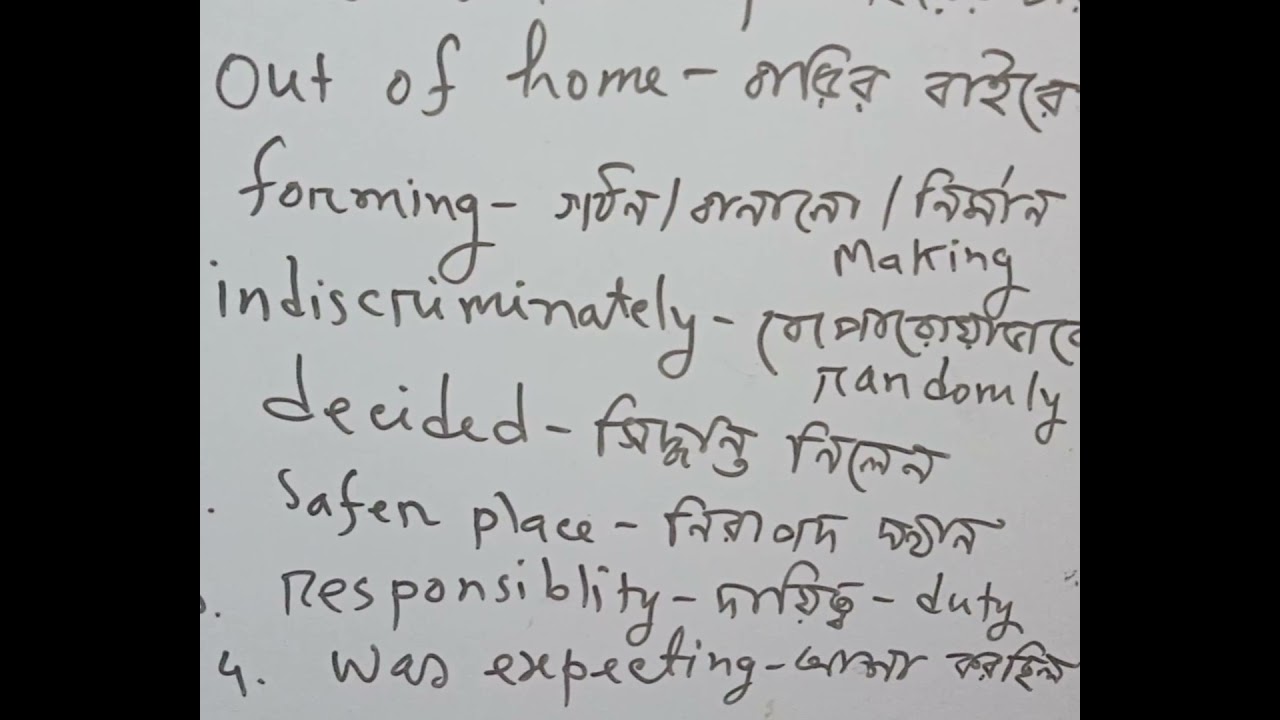 Out of home - বাড়ির বাইরে
forming - গঠন / বানানো / নির্মান
Making
indiscriminately - বেপরোয়াভাবে
randomly
decided - সিদ্ধান্ত নিলেন
Safer place - নিরাপদ স্থান
Responsiblity - দায়িত্ব - duty
4. Was expecting - আশা করছিল